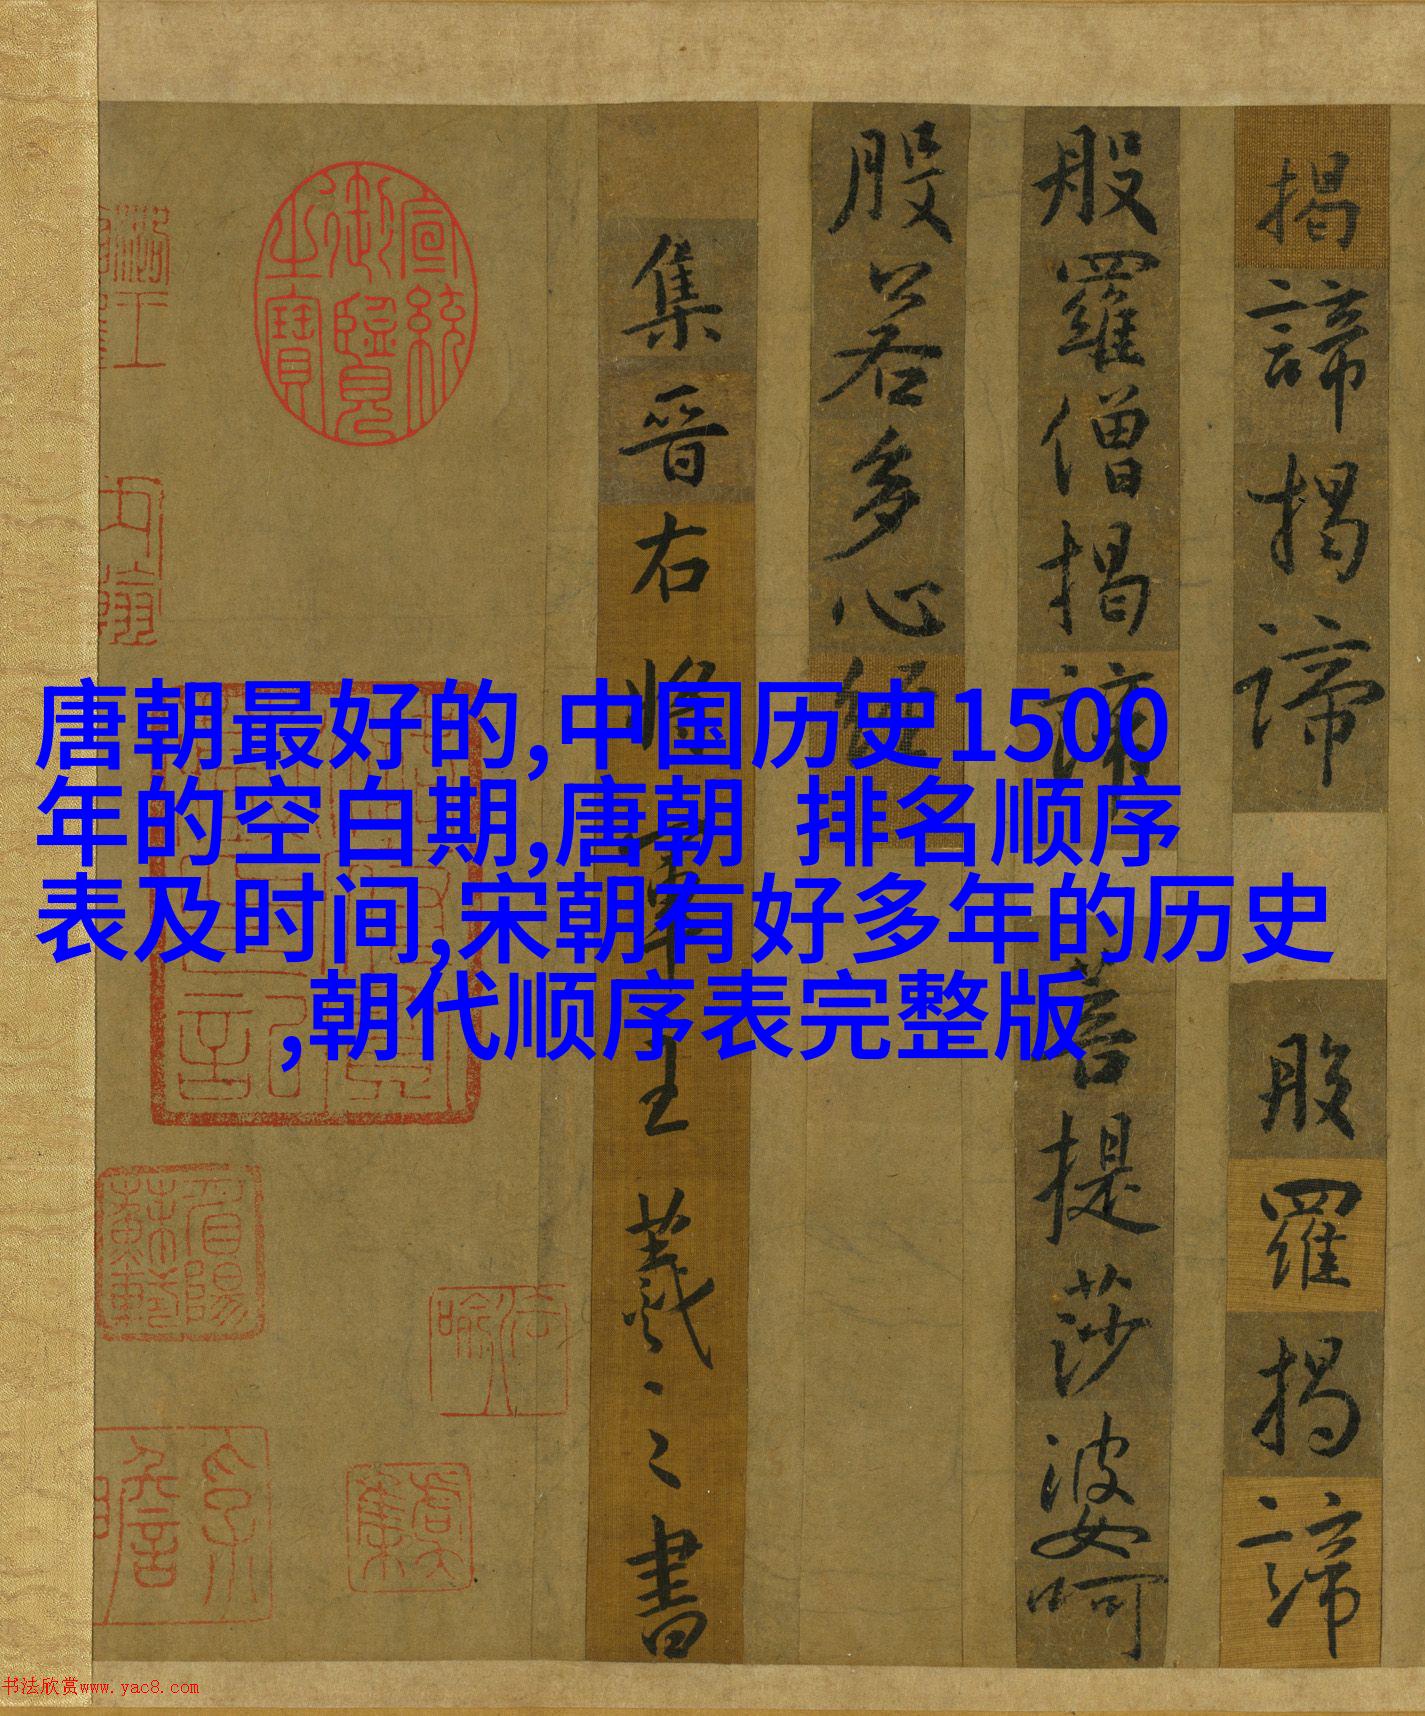 唐朝最好的,中国历史1500
年的空白期,唐朝 排名顺序
表及时间,宋朝有好多年的历史
,朝代顺序表完整版
揭諦揭諦 般羅揭諦
般羅僧揭諦 菩提莎婆呵
般若多心經
集晉右將軍王羲之書
宣統御覽之寶
书法欣赏www.yac8.com